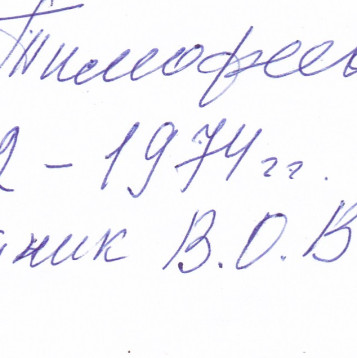 Тимофеев
2 - 1974 гг.
ник В.О.В